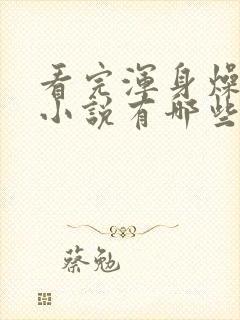 看完浑身燥
小说有哪些
蔡勉